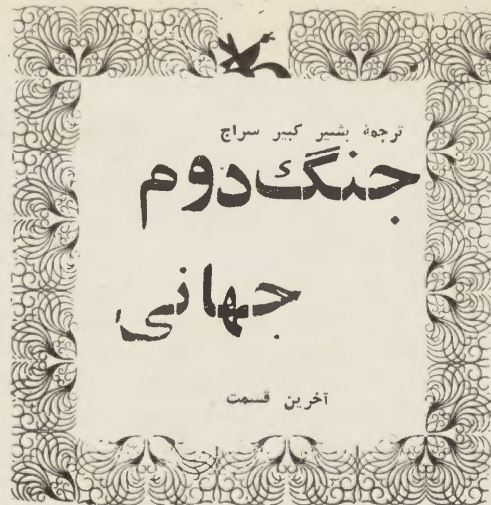 ترجمهٔ بشیر کبیر سراج
جنگ دوم
جهانی
آخرین قسمت